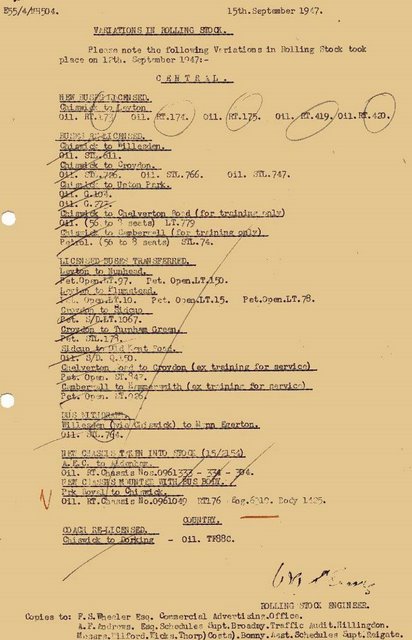 E55/4/WH504. 15th.September 1947.
VARIATIONS IN ROLLING STOCK.
Please note the following Variations in Rolling Stock took
place on 12th. September 1947:-
C E N T R A L .
NEW BUSES LICENSED.
Chiswick to Leyton
Oil. RT.173 Oil. RT.174. Oil. RT.175. Oil. RT.419. Oil.RT.420.
BUSES RE-LICENSED.
Chiswick to Willesden.
Oil. STL.611.
Chiswick to Croydon.
Oil. STL.746. Oil. STL.766. Oil. STL.747.
Chiswick to Upton Park.
Oil. G.104.
Oil. G.272.
Chiswick to Chelverton Road (for training only)
Oil. (56 to 8 seats) LT.779
Chiswick to Camberwell (for training only).
Petrol. (56 to 8 seats) STL.74.
LICENSED BUSES TRANSFERRED.
Leyton to Nunhead.
Pet.Open.LT.97. Pet. Open.LT.150.
Leyton to Plumstead.
Pet. Open.LT.10. Pet. Open.LT.15. Pet. Open.LT.78.
Croydon to Sidcup
Pet. S/D.LT.1067.
Croydon to Turnham Green.
Pet. STL.178.
Sidcup to Old Kent Road.
Oil. S/D. Q.150.
Chelverton Road to Croydon (ex training for service)
Pet. Open. ST.842.
Camberwell to Hammersmith (ex training for service)
Pet. Open. LT.926.
BUS
Willesden (via Chiswick) to Wm Egerton.
Oil. STL.794.
NEW CHASSIS TAKEN INTO STOCK (15/2154)
A.E.C. to Aldenham.
Oil. RT.Chassis Nos.0961333 - 334 - 304.
NEW CHASSIS MOUNTED WITH BUS BODY.
Prk Royal to Chiswick.
Oil. RT.Chassis No.0961049 RT176 Body 1425.
COUNTRY.
COACH RE-LICENSED.
Chiswick to Dorking - Oil. TF88C.
ROLLING STOCK ENGINEER.
Copies to: F.S.Wheeler Esq. Commercial Advertising.Office.
A.F.Andrews. Esq.Schedules Supt.Broadwy.Traffic Audit.Hillingdon.
Messrs.Hilford,Hicks,Thorp(Costs).Bonny.Asst.Schedules Supt.Reigate.